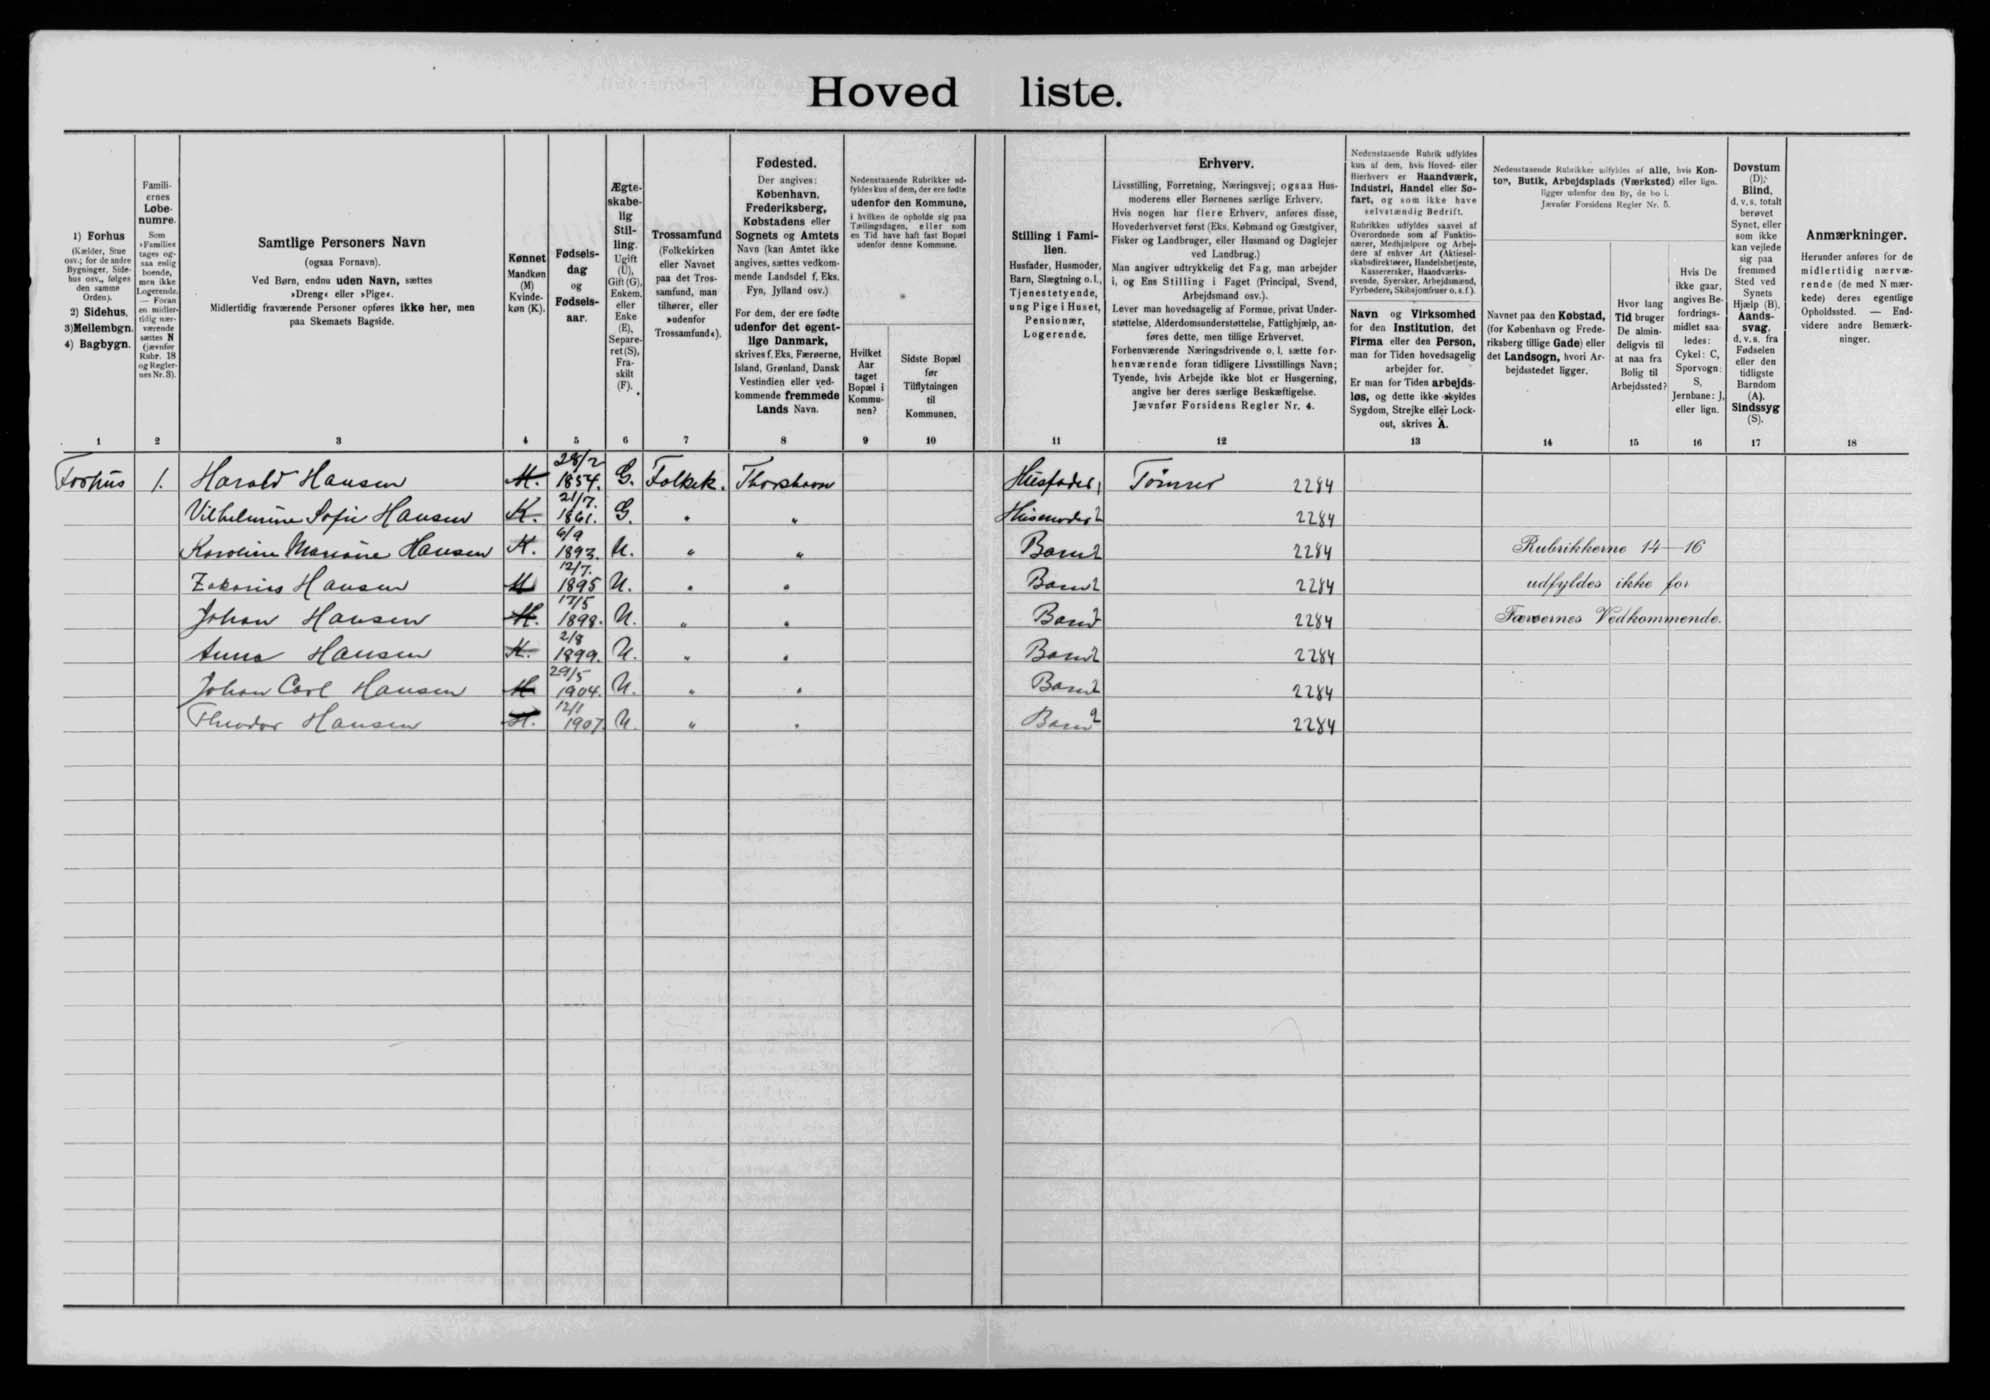 Hovedliste.
1) Forhus
(Kælder, Stue
osv.; for de andre
Bygninger, Side-
hus osv., følges
den samme
Orden).
2) Sidehus,
3) Mellembgn.
4) Bagbygn.
Famili-
ernes
Løbe-
numre.
Som
»Familie«
tages og-
saa enlig
boende,
men ikke
Logerende.
— Foran
en midler-
tidig nær-
værende
sættes N
(jævnfør
Rubr. 18
og Regler-
nes Nr. 3).
Samtlige Personers Navn
(ogsaa Fornavn).
Ved Børn, endnu uden Navn, sættes
»Dreng« eller »Pige«.
Midlertidig fraværende Personer opføres ikke her, men
paa Skemaets Bagside.
Kønnet
Mandkøn
(M)
Kvinde-
køn (K).
Fødsels-
dag
og
Fødsels-
aar.
Ægte-
skabe-
lig
Stil-
ling.
Ugift
(U),
Gift (G),
Enkem.
eller
Enke
(E),
Separe-
ret (S),
Fra-
skilt
(F).
Trossamfund
(Folkekirken
eller Navnet
paa det Tros-
samfund, man
tilhører, eller
»udenfor
Trossamfund«).
Fødested.
Der angives:
København,
Frederiksberg,
Købstadens eller
Sognets og Amtets
Navn (kan Amtet ikke
angives, sættes vedkom-
mende Landsdel f. Eks.
Fyn, Jylland osv.)
For dem, der ere fødte
udenfor det egent-
lige Danmark,
skrives f. Eks. Færøerne,
Island, Grønland, Dansk
Vestindien eller ved-
kommende fremmede
Lands Navn.
Nedenstaaende Rubrikker ud-
fyldes kun af dem, der ere fødte
udenfor den Kommune,
i hvilken de opholde sig paa
Tællingsdagen, eller som
es Tid have haft fast Bopæl
udenfor denne Kommune.
Hvilket
Aar
taget
Bopæl i
Kommu-
nen?
Sidste Bopæl
før
Tilflytningen
til
Kommunen.
Stilling i Fami-
lien.
Husfader, Husmoder,
Barn, Slægtning o. l.,
Tjenestetyende,
ung Pige i Huset,
Pensionær,
Logerende.
Erhverv.
Livsstilling, Forretning, Næringsvej; ogsaa Hus-
moderens eller Børnenes særlige Erhverv.
Hvis nogen har flere Erhverv, anføres disse,
Hovederhvervet først (Eks. Købmand og Gæstgiver,
Fisker og Landbruger, eller Husmand og Daglejer
ved Landbrug.)
Man angiver udtrykkelig det Fag, man arbejder
i, og Ens Stilling i Faget (Principal, Svend,
Arbejdsmand osv.).
Lever man hovedsagelig af Formue, privat Under-
støttelse, Alderdomsunderstøttelse, Fattighjælp, an-
føres dette, men tillige Erhvervet.
Forhenværende Næringsdrivende o. l. sætte for-
henværende foran tidligere Livsstillings Navn;
Tyende, hvis Arbejde ikke blot er Husgerning,
angive her deres særlige Beskæftigelse.
Jævnfør Forsidens Regler Nr. 4.
Nedenstaaende Rubrik udfyldes
kun af dem, hvis Hoved- eller
Bierhverv er Haandværk,
Industri, Handel eller Sø-
fart, og som ikke have
selvstændig Bedrift.
Rubrikken udfyldes saavel af
Overordnede som af Funktio-
nærer, Medhjælpere og Arbej-
dere af enhver Art (Aktiesel-
skabsdirektører, Handelsbetjente,
Kasserersker, Haandværks-
svende, Syersker, Arbejdsmænd,
Fyrbødere, Skibsjomfruer o. s. f.).
Navn og Virksomhed
for den Institution, det
Firma eller den Person,
man for Tiden hovedsagelig
arbejder for.
Er man for Tiden arbejds-
løs, og dette ikke skyldes
Sygdom, Strejke eller Lock-
out, skrives A.
Nedenstaaende Rubrikker udfyldes af alle, hvis Kon-
tor, Butik, Arbejdsplads (Værksted) eller lign.
ligger udenfor den By, de bo i.
Jævnfør Forsidens Regler Nr. 5.
Navnet paa den Købstad,
(for København og Frede-
riksberg tillige Gade) eller
det Landsogn, hvori Ar-
bejdsstedet ligger.
Hvor lang
Tid bruger
De almin-
deligvis til
at naa fra
Bolig til
Arbejdssted?
Hvis De
ikke gaar,
angives Be-
fordrings-
midlet saa-
ledes:
Cykel: C,
Sporvogn:
S,
Jernbane: J,
eller lign.
Døvstum
(D);
Blind,
d. v. s. totalt
berøvet
Synet, eller
som ikke
kan vejlede
sig paa
fremmed
Sted ved
Synets
Hjælp (B).
Aands-
svag,
d. v. s. fra
Fødselen
eller den
tidligste
Barndom
(A).
Sindssyg
(S).
Anmærkninger.
Herunder anføres for de
midlertidig nærvæ-
rende (de med N mær-
kede) deres egentlige
Opholdssted. — End-
videre andre Bemærk-
ninger.
1 2 3 4 5 6 7 8 9 10 11 12 13 14 15 16 17 18
Forhus 1. Harald Hansen M. 28/2 1854. G. Folkek. Thorshavn Husfader 1 Tømrer 2284
Vilhelmine Sofie Hansen K. 21/7. 1861. G. " " Husmoder 2 2284
Karoline Marione Hansen K. 6/9 1893. U. " " Barn 2 2284 Rubrikkerne 14—16
Zakarius Hansen M 12/7. 1895 U. " " Barn 2 2284 udfyldes ikke for
Johan Hansen M. 17/5 1898. U. " " Barn 2 2284 Færøernes Vedkommende.
Anna Hansen K. 2/8 1899. U. " " Barn 2 2284
Johan Carl Hansen M 29/5 1904. U. " " Barn 2 2284
Theodor Hansen M. 12/1 1907. U. " " Barn 2 2284